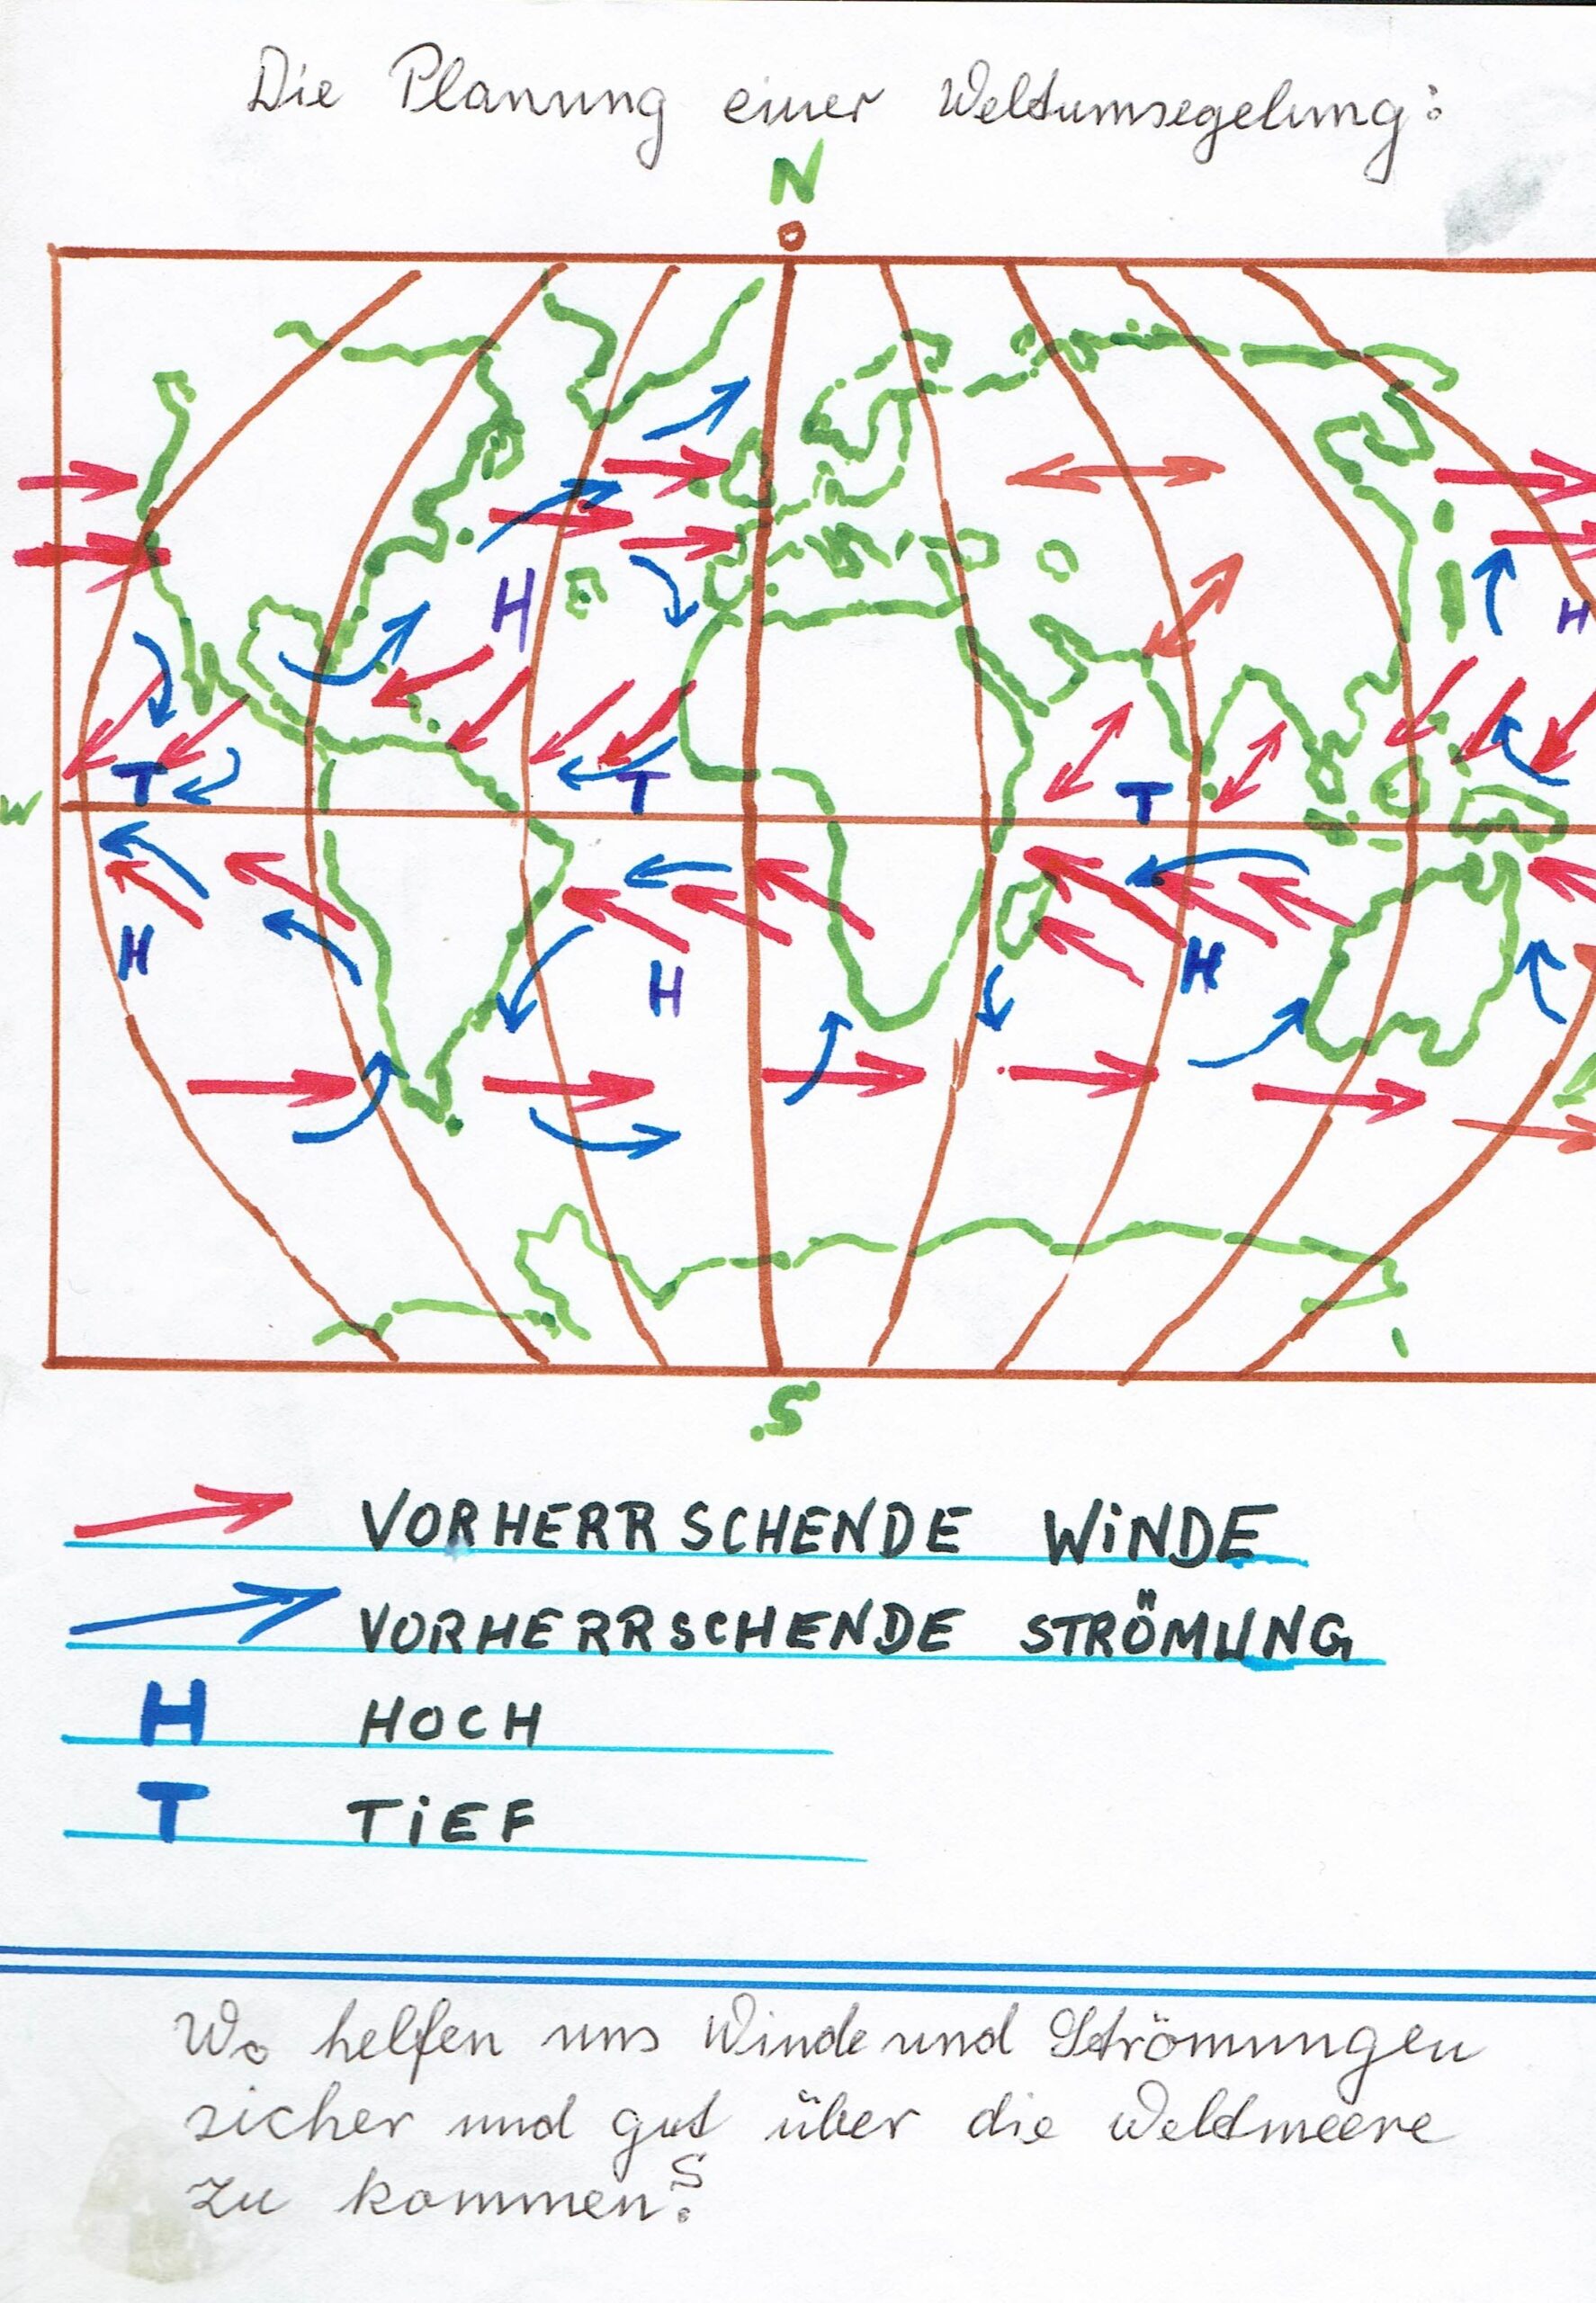 Die Planung einer Weltumsegelung:
N
H
H
T
T
T
W
H
H
H
S
VORHERRSCHENDE WINDE
VORHERRSCHENDE STRÖMUNG
H HOCH
T TiEF
Wo helfen uns Winde und Strömungen
sicher und gut über die Weltmeere
zu kommen?